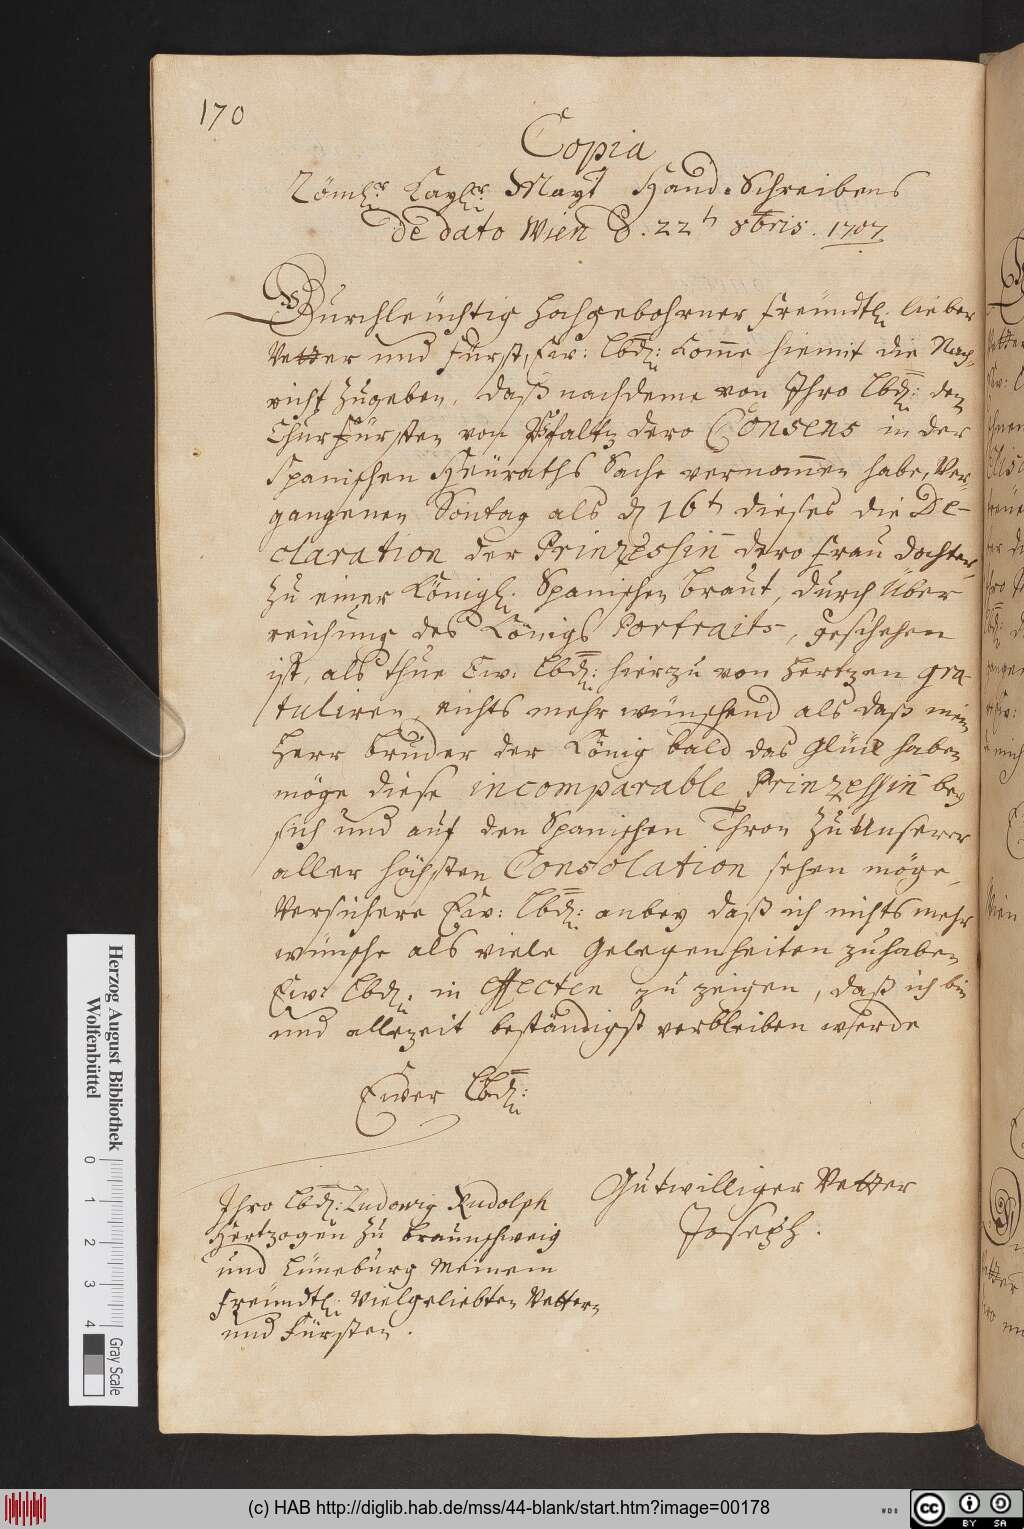 170
Copia
Römr. Kayl. Mayt Hand-Schreibens
de dato Wien d. 22t 8bris. 1707.
Durchleüchtig Hochgebohrner Freündtl. lieber
Vetter und Fürst, Ew: Lbd: komme hiemit die Nach-
richt zugeben, daß nachdeme von Ihro Lbd: dem
ChurFürsten von Pfaltz dero Consens in der
Spanischen Heüraths Sache vernommen habe, Ver-
gangenen Sontag als d 16t dieses die De-
claration der Prinzessin dero Frau Dochter,
zu einer Königl. Spanischen Braut, durch Über
reichung des Königs Portraits, geschehen
ist, als thue Ew: Lbd: hierzu von Hertzen gra-
tuliren, nichts mehr wünschend als daß mein
Herr Bruder der König bald das Glück haben
möge diese incomparable Prinzessin bey
sich und auf den Spanischen Thron zu Unserer
aller höchsten Consolation sehen möge,
Versichere Ew: Lbd: anbey daß ich nichts mehr
wünsche als viele Gelegenheiten zuhaben
Ew: Lbd: in effecten zu zeigen, daß ich bin
und allezeit beständigst verbleiben werde
Ewer Lbd:
Gutwilliger Vetter
Joseph.
Ihro Lbd: Ludowig Rudolph
Hertzogen zu Braunschweig
und Lüneburg Meinem
Freündtl: Vielgeliebten Vettern
und Fürsten.
Herzog August Bibliothek
Wolfenbüttel
0 1 2 3 4
Gray Scale
(c) HAB http://diglib.hab.de/mss/44-blank/start.htm?image=00178
WDB
cc BY SA